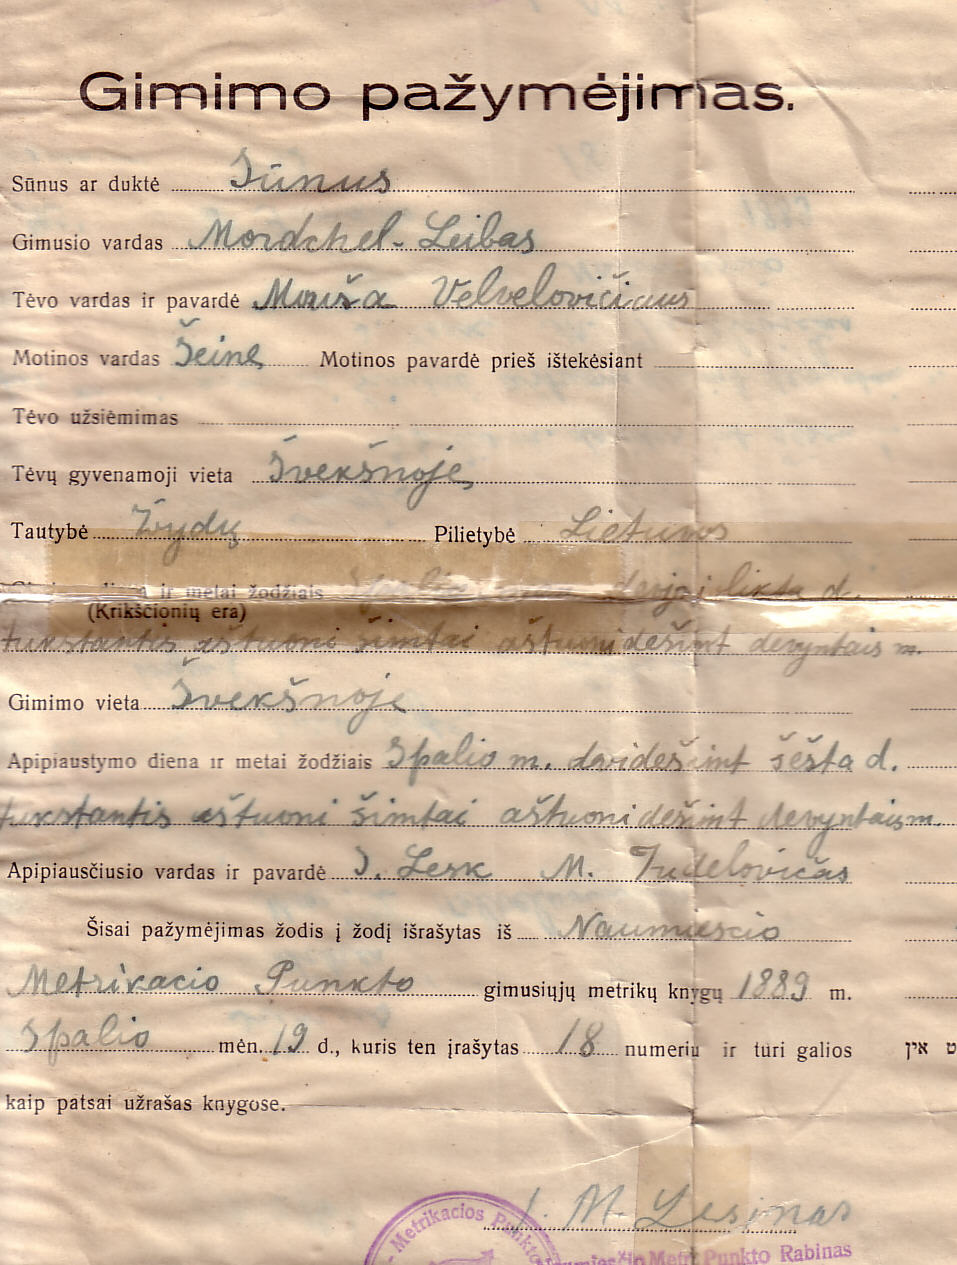 Gimimo pažymėjimas.
Sūnus ar duktė Sūnus
Gimusio vardas Mordchel-Leibas
Tėvo vardas ir pavardė Velvelovičiaus
Motinos vardas Šeinę Motinos pavardė prieš ištekėsiant
Tėvo užsiėmimas
Tėvų gyvenamoji vieta Švekšnoje
Tautybė Žydų Pilietybė Lietuvos
ir metai žodžiais devyniolikta d.
(Krikščionių era)
tukstantis aštuoni šimtai aštuonidešimt devyntais m.
Gimimo vieta Švekšnoje
Apipiaustymo diena ir metai žodžiais Spalio m. dvidešimt šešta d.
tukstantis aštuoni šimtai aštuonidešimt devyntais m.
Apipiausčiusio vardas ir pavardė J. Lesk M. Judelovičas
Šisai pažymėjimas žodis į žodį išrašytas iš Naumiescio
Metrikacio Punkto gimusiųjų metrikų knygų 1889 m.
Spalio mėn. 19 d., kuris ten įrašytas 18 numeriu ir turi galios
ט אין
kaip patsai užrašas knygose.
M. Lesinas
Metrikacios Punkto
Metr. Punkto Rabinas